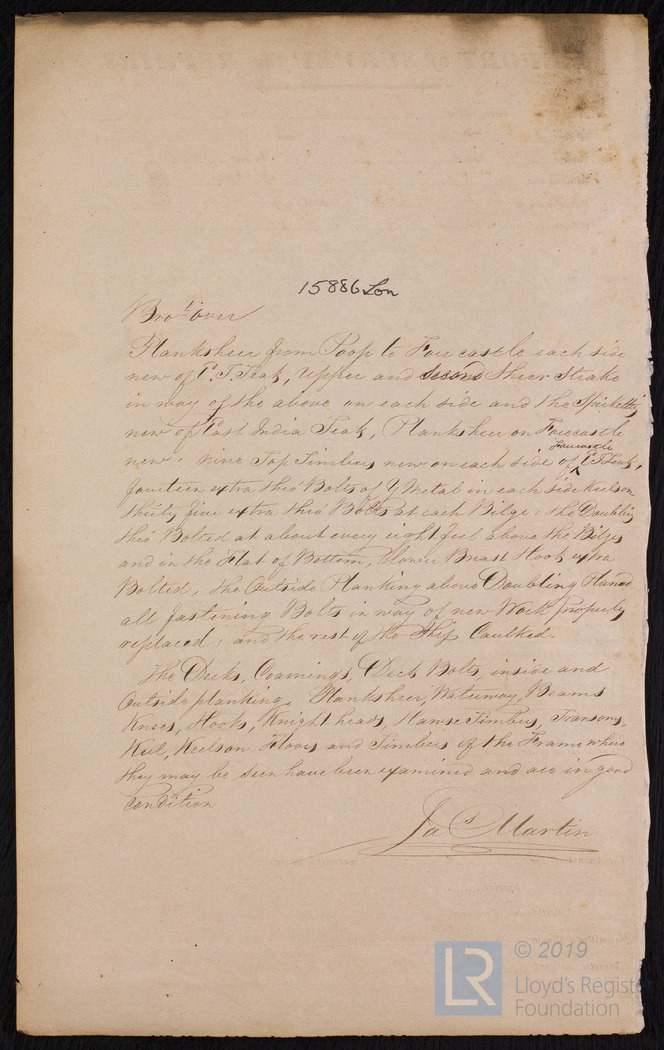 15886 Lon
Bro.t over
Planksheer from Poop to Forecastle each side
new of E.I. Teak, Upper and Second Shear Strake
in way of the above on each side and the Spirkettg
new of East India Teak, Planksheer on Forecastle
new; nine Top Timbers new on each side of Forecastle E.I. Teak,
fourteen extra thro' Bolts of Y Metal in each side Keelson
thirty five extra thro' Bolts at each Bilge; the Doubling
thro' Bolted at about every eight feet above the Bilges
and in the Flat of Bottom, Lower Breast Hook extra
Bolted, the Outside Planking above Doubling Planed
all fastening Bolts in way of new Work properly
replaced; and the rest of the Ship Caulked.
The Decks, Coamings, Deck Bolts, inside and
Outside planking, Planksheer, Waterway, Beams
Knees, Hooks, Knight heads, Hawse Timbers, Transoms,
Keel, Keelson Floors and Timbers of the Frame where
they may be seen have been examined and are in good
condition
Ja.s Martin
LR
© 2019
Lloyd's Register
Foundation